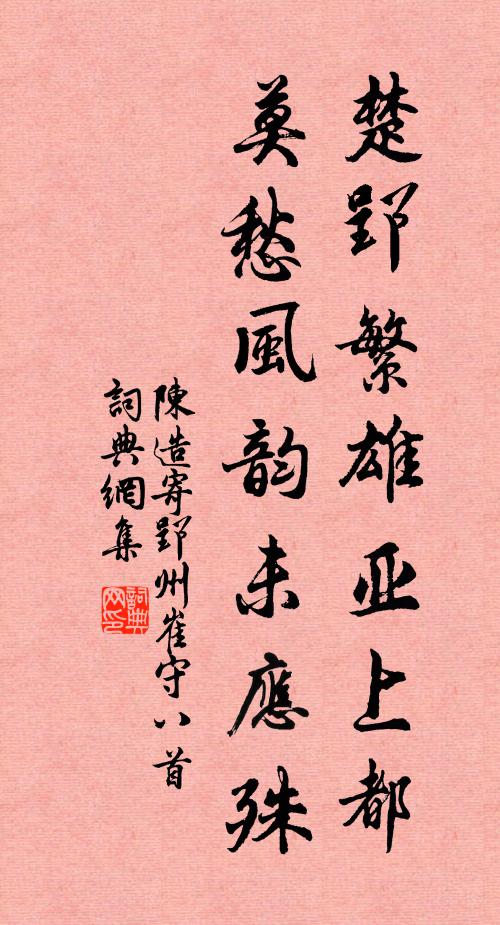 楚郢繁雄亚上都
莫愁風韵未應殊
陳造寄郢州崔守八首
詞典網集
詞典网印